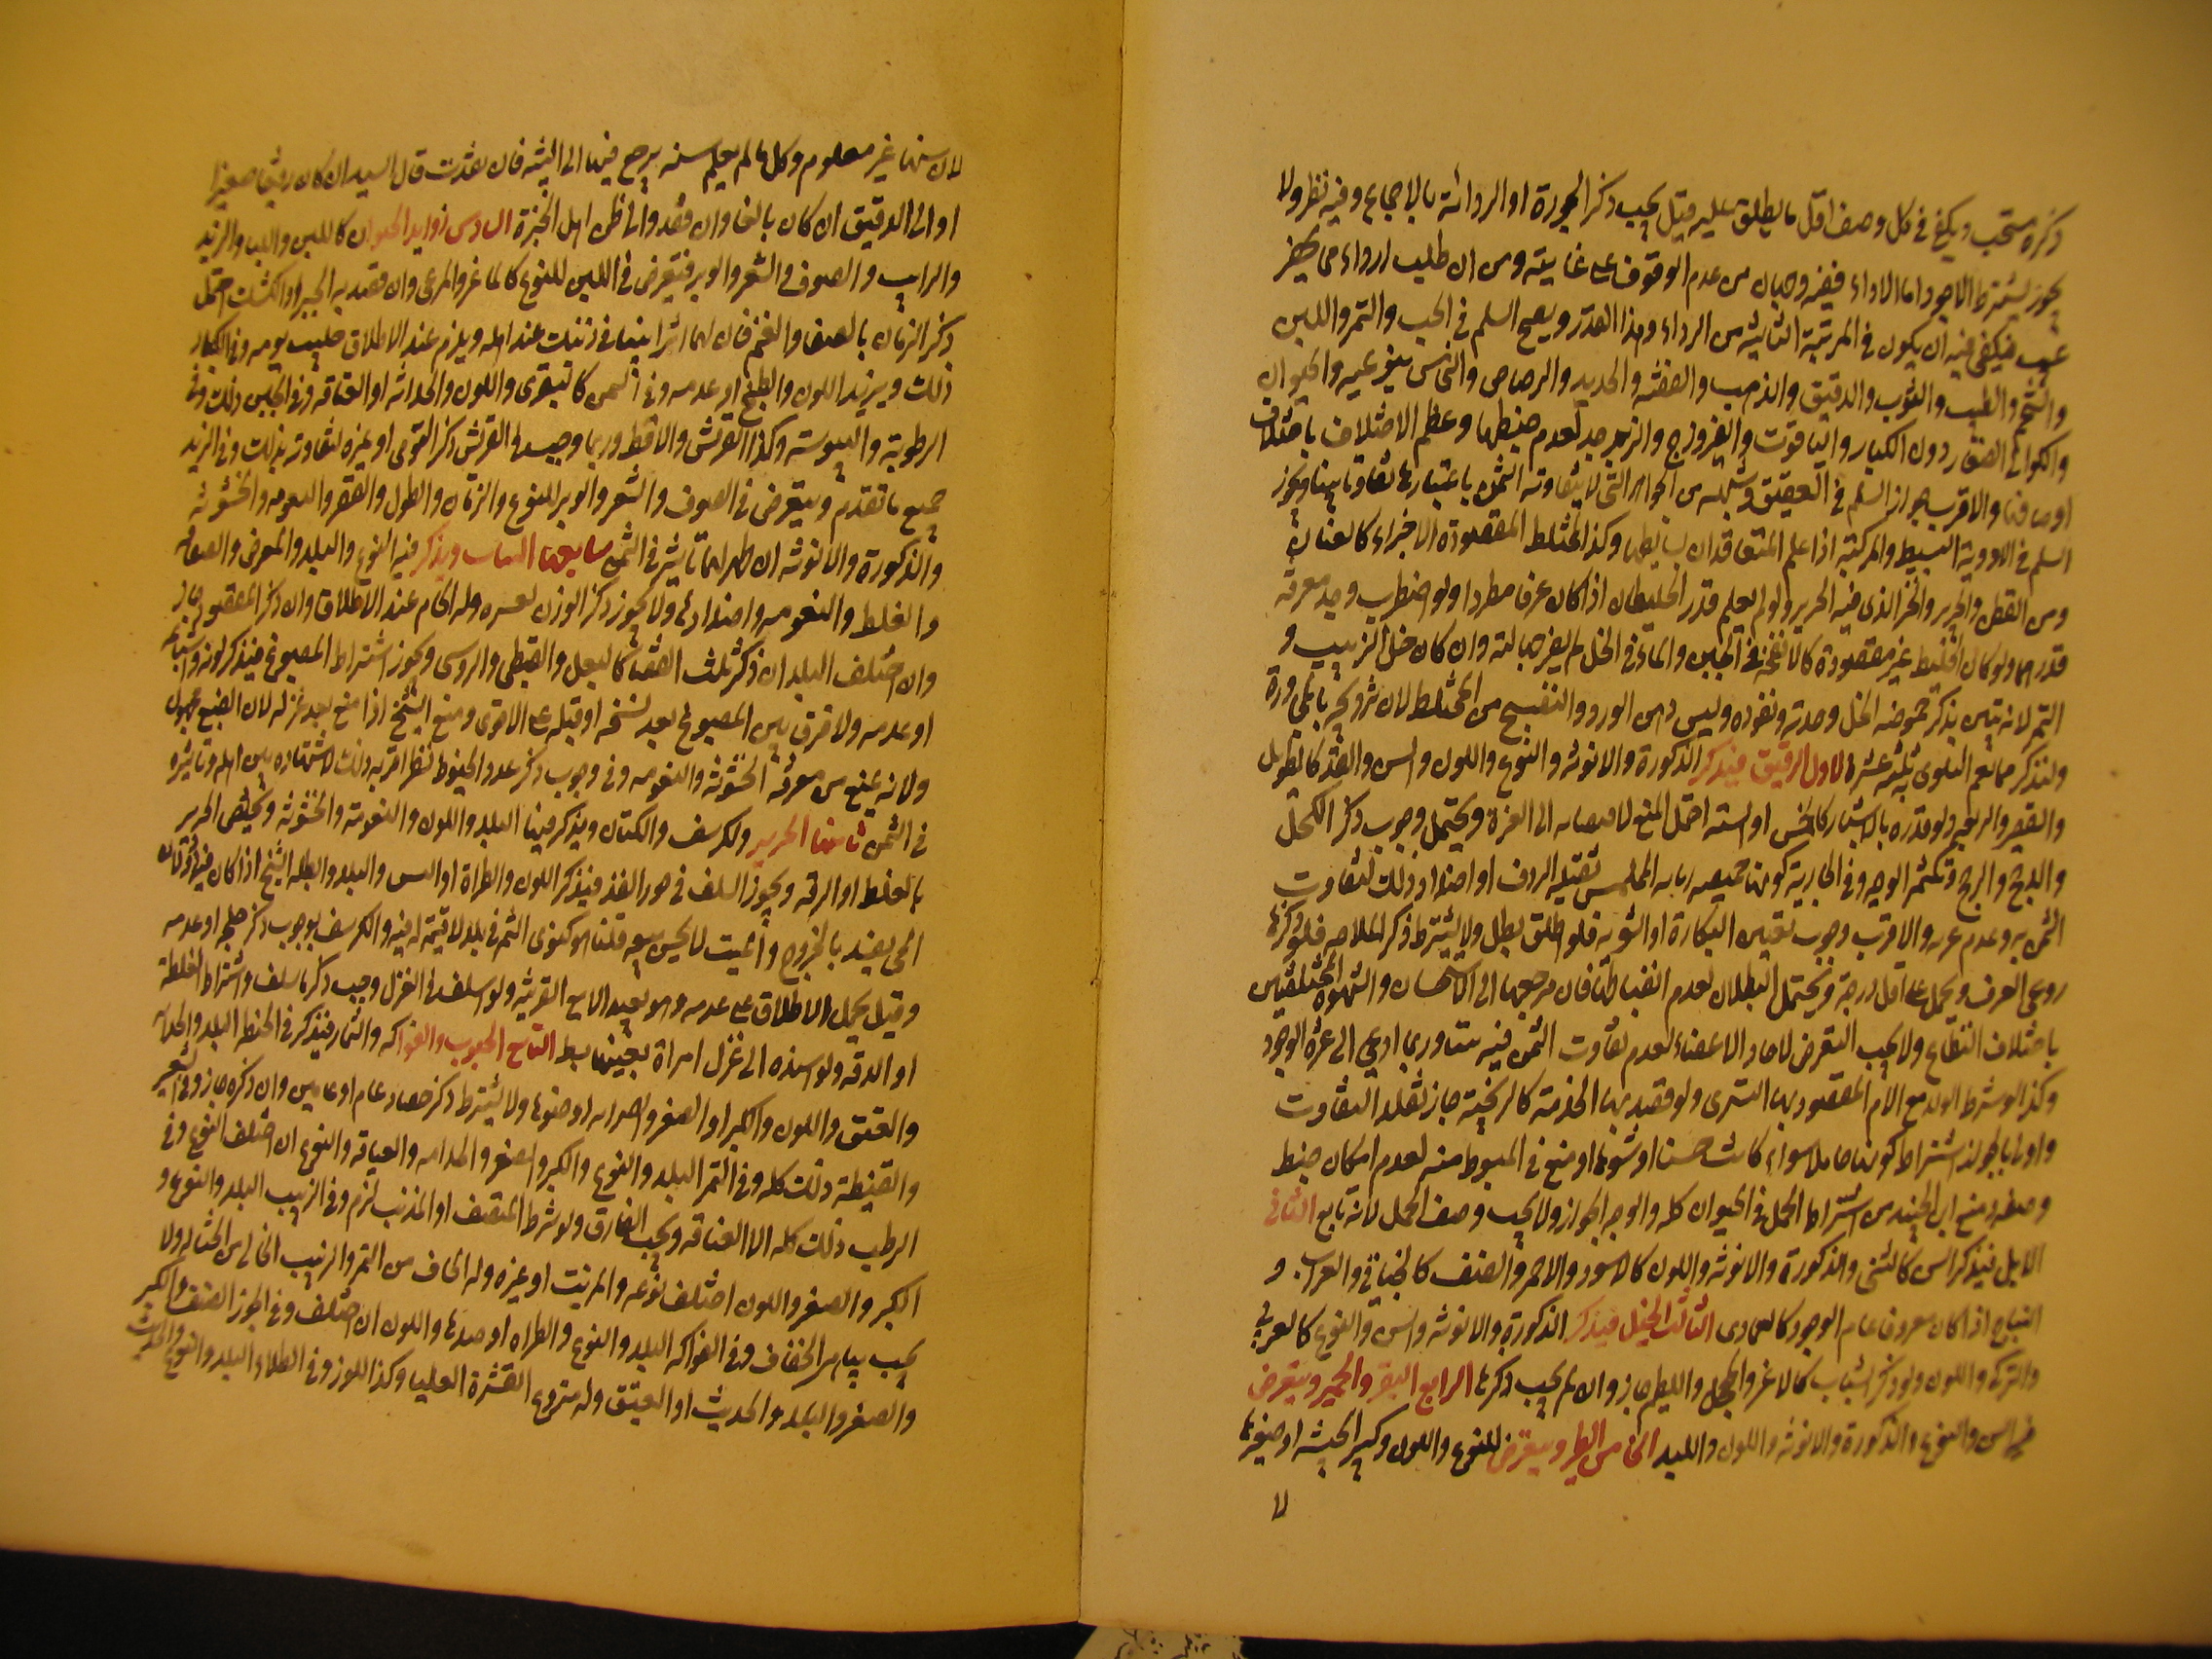 ذكره مستحب ويكفي في كل وصف اقل ما يطلق عليه قيل يجب ذكر الجودة او الردائة بالاجماع وفيه نظر ولا
يجوز يشترط الاجود اما الاداء ففيه وجهان من عدم الوقوف على غايته ومن ان طلب ارداء من
عيب فيكفي فيه ان يكون في المرتبة الثانية من الرداء وهذا القدر ويصح السلم في الحب والتمر واللبن
والشحم والطيب والثوب والدقيق والذهب والفضة والحديد والرصاص والنحاس والحيوان
واللآلي الصغار دون الكبار والياقوت والفيروزج والزبرجد لعدم ضبطها وعظم الاختلاف باختلاف
اوصافها والاقرب جواز السلم في العقيق وشبهه من الجواهر التي لا يتفاوت الثمن باعتبارها تفاوتا بينا ويجوز
السلم في الادوية البسيط والمركبة اذا علم المتعاقدان بسايطها وكذا المختلط المقصودة الاجزاء كالعتابي
ومن القطن والحرير والخز الذي فيه الحرير ولو لم يعلم قدر الخليطان اذا كان عرف مطردا ولو اضطرب وجد معرفة
قدرهما ولو كان الخليط غير مقصودة كالانفحة في الجبن والماء في الخل لم يضر جهالته وان كان خل الزبيب و
التمر لانه يتبين بذكر حموضة الخل وحدته ونفوذه وليس دهن الورد والبنفسج من المختلط لان تروحه بالمجاورة
ولنذكر مما يعم البلوى ثلثة عشر الاول الرقيق فيذكر الذكورة والانوثة والنوع واللون والسن والقد كالطويل
والقصير والربعه ولو قدره بالاشبار كالخمس او الستة احتمل المنع لافضائه الى العزة ويحتمل وجوب ذكر الكحل
والدعج والزج وتكلثم الوجه وفي الجارية كونها خميصه ريانه الملمس ثقيلة الردف او اضداد ذلك لتفاوت
الثمن به وعدم عزته والاقرب وجوب تعيين البكارة او الثيوبة فلو اطلق بطل ولا يشترط ذكر الملاحة فلو ذكرها
روعي العرف ويحمل على اقل درجة ويحتمل البطلان لعدم انضباطها فان مرجعها الى الاستحسان والشهوة المختلفين
باختلاف الطباع ولا يجب التعرض لآحاد الاعضاء لعدم تفاوت الثمن فيه متساو ربما ادى الى عزة الوجود
وكذا لو شرط الولد مع الام المقصود بها التسري ولو قصد بها الخدمة كالزنجية جاز لقلة التفاوت
واولى بالجواز اشتراط كونها حاملا سواء كانت حسنا او شوها ومنع في المبسوط منه لعدم امكان ضبط
وصفه ومنع ابن الجنيد من اشتراط الحمل في الحيوان كله والوجه الجواز ولا يجب وصف الحمل لانه تابع الثاني
الابل فيذكر السن كالثني والذكورة والانوثة واللون كالاسود والاحمر والصنف كالبخاتي والعراب و
النتاج اذا كان معروف عام الوجود كالعبادى الثالث الخيل فيذكر الذكورة والانوثة والسن والنوع كالعربي
والتركي واللون ولو ذكر الشيات كالاغر والمحجل واللطيم جاز وان لم يجب ذكرها الرابع البقر والحمير ويتعرض
فيه للسن والنوع والذكورة والانوثة واللون والبلد الخامس الطير ويتعرض للنوع واللون وكبير الجثة او صغيرها
لا
لان سنها غير معلوم وكل ما لم يعلم سنه يرجع فيها الى البينة فان فقدت قال السيد ان كان رقيقا صغيرا
او الى الرقيق ان كان بالغا وان فقد والى ظن اهل الخبرة السادس زوايد الحيوان كاللبن واللباء والزبد
والرايب والصوف والشعر والوبر فيتعرض في اللبن للنوع كالماعز والمرعى وان قصد به الجبن او الكشك احتمل
ذكر الزمان بالصفا والغيم فان لهما اثرا بينا في ذلك عند اهله ويلزم عند الاطلاق حليب يومه وفي اللباء
ذلك ويزيد اللون والطبخ او عدمه وفي السمن كالبقري واللون والحداثة او العتاقة وفي الجبن ذلك وفي
الرطوبة واليبوسة وكذا القريش والاقط وربما وجب في القريش ذكر القومي او غيره لتفاوته بذلك وفي الزبد
جميع ما تقدم ويتعرض في الصوف والشعر والوبر للنوع والزمان والطول والقصر والنعومة والخشونة
والذكورة والانوثة ان ظهر لهما تاثير في الثمن سابعها الثياب ويذكر فيه النوع والبلد والعرض والصفاقة
والغلظ والنعومة واضدادها ولا يجوز ذكر الوزن لعسره وله الخام عند الاطلاق وان ذكر المقصور جاز
وان اختلف البلدان ذكر تلك الصفة كالبعلي والقبطي والروسي ويجوز اشتراط المصبوغ فيذكر لونه واشباعه
او عدمه ولا فرق بين المصبوغ بعد نسخه او قبله على الاقوى ومنع الشيخ اذا صبغ بعد غزله لان الصبغ مجهول
ولانه يمنع من معرفة الخشونة والنعومة وفي وجوب ذكر عدد الخيوط نظر اقربه ذلك لاشتهاره بين اهله وتاثيره
في الثمن ثامنها الحرير والكرسف والكتان ويذكر فيها البلد واللون والنعومة والخشونة ويختص الحرير
بالغلظ او الرقة ويجوز السلف في جوز القز فيذكر اللون والطراوة او اليبس والبلد وابطله الشيخ اذا كان فيه دود لان
الحي يفسد بالخروج والميت لا يحسن بيعه قلنا هو كنوى التمر في بلد لا قيمة له فيه والكرسف بوجوب ذكر حلجه او عدمه
وقيل يحمل الاطلاق على عدمه وهو بعيد الا مع القرينة ولو اسلف في الغزل وجب ذكر ما سلف واشتراط الغلظة
او الدقة ولو اسنده الى غزل امراة بعينها بطل التاسع الحبوب والفواكه والثمار فيذكر في الحنطة البلد والحداثة
والعتق واللون والكبر او الصغر والصرابة او ضدها ولا يشترط ذكر حصاد عام او عامين وان ذكره جاز وفي الشعير
والقنيطة ذلك كله وفي التمر البلد والنوع والكبر والصغر والحداثة والعتاقة والنوع ان اختلف النوع وفي
الرطب ذلك كله الا العتاقة ويجب الفارق ولو شرط المنصف او المذنب لزم وفي الزبيب البلد والنوع و
الكبر والصغر واللون ان اختلف نوعه والمزيت او غيره وله الجاف من التمر والزبيب الخالي من الحثالة ولا
يجب تناهي الجفاف وفي الفواكه البلد والنوع والطراوة او ضدها واللون ان اختلف وفي الجوز الصنف والكبر
والصغر والبلد والحديث او العتيق وله منزوع القشرة العليا وكذا اللوز وفي الطلاء البلد والنوع والحديث